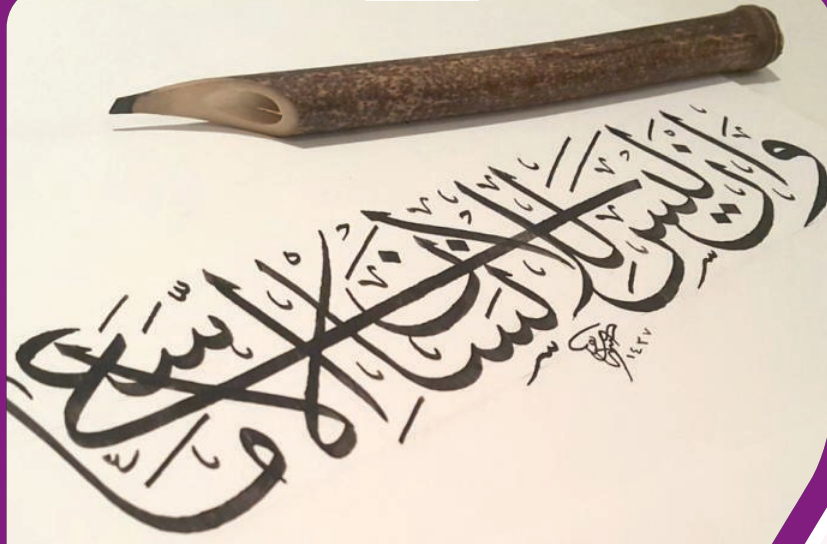 وأن ليس للإنسان إلا ما سعى
١٤٣٧